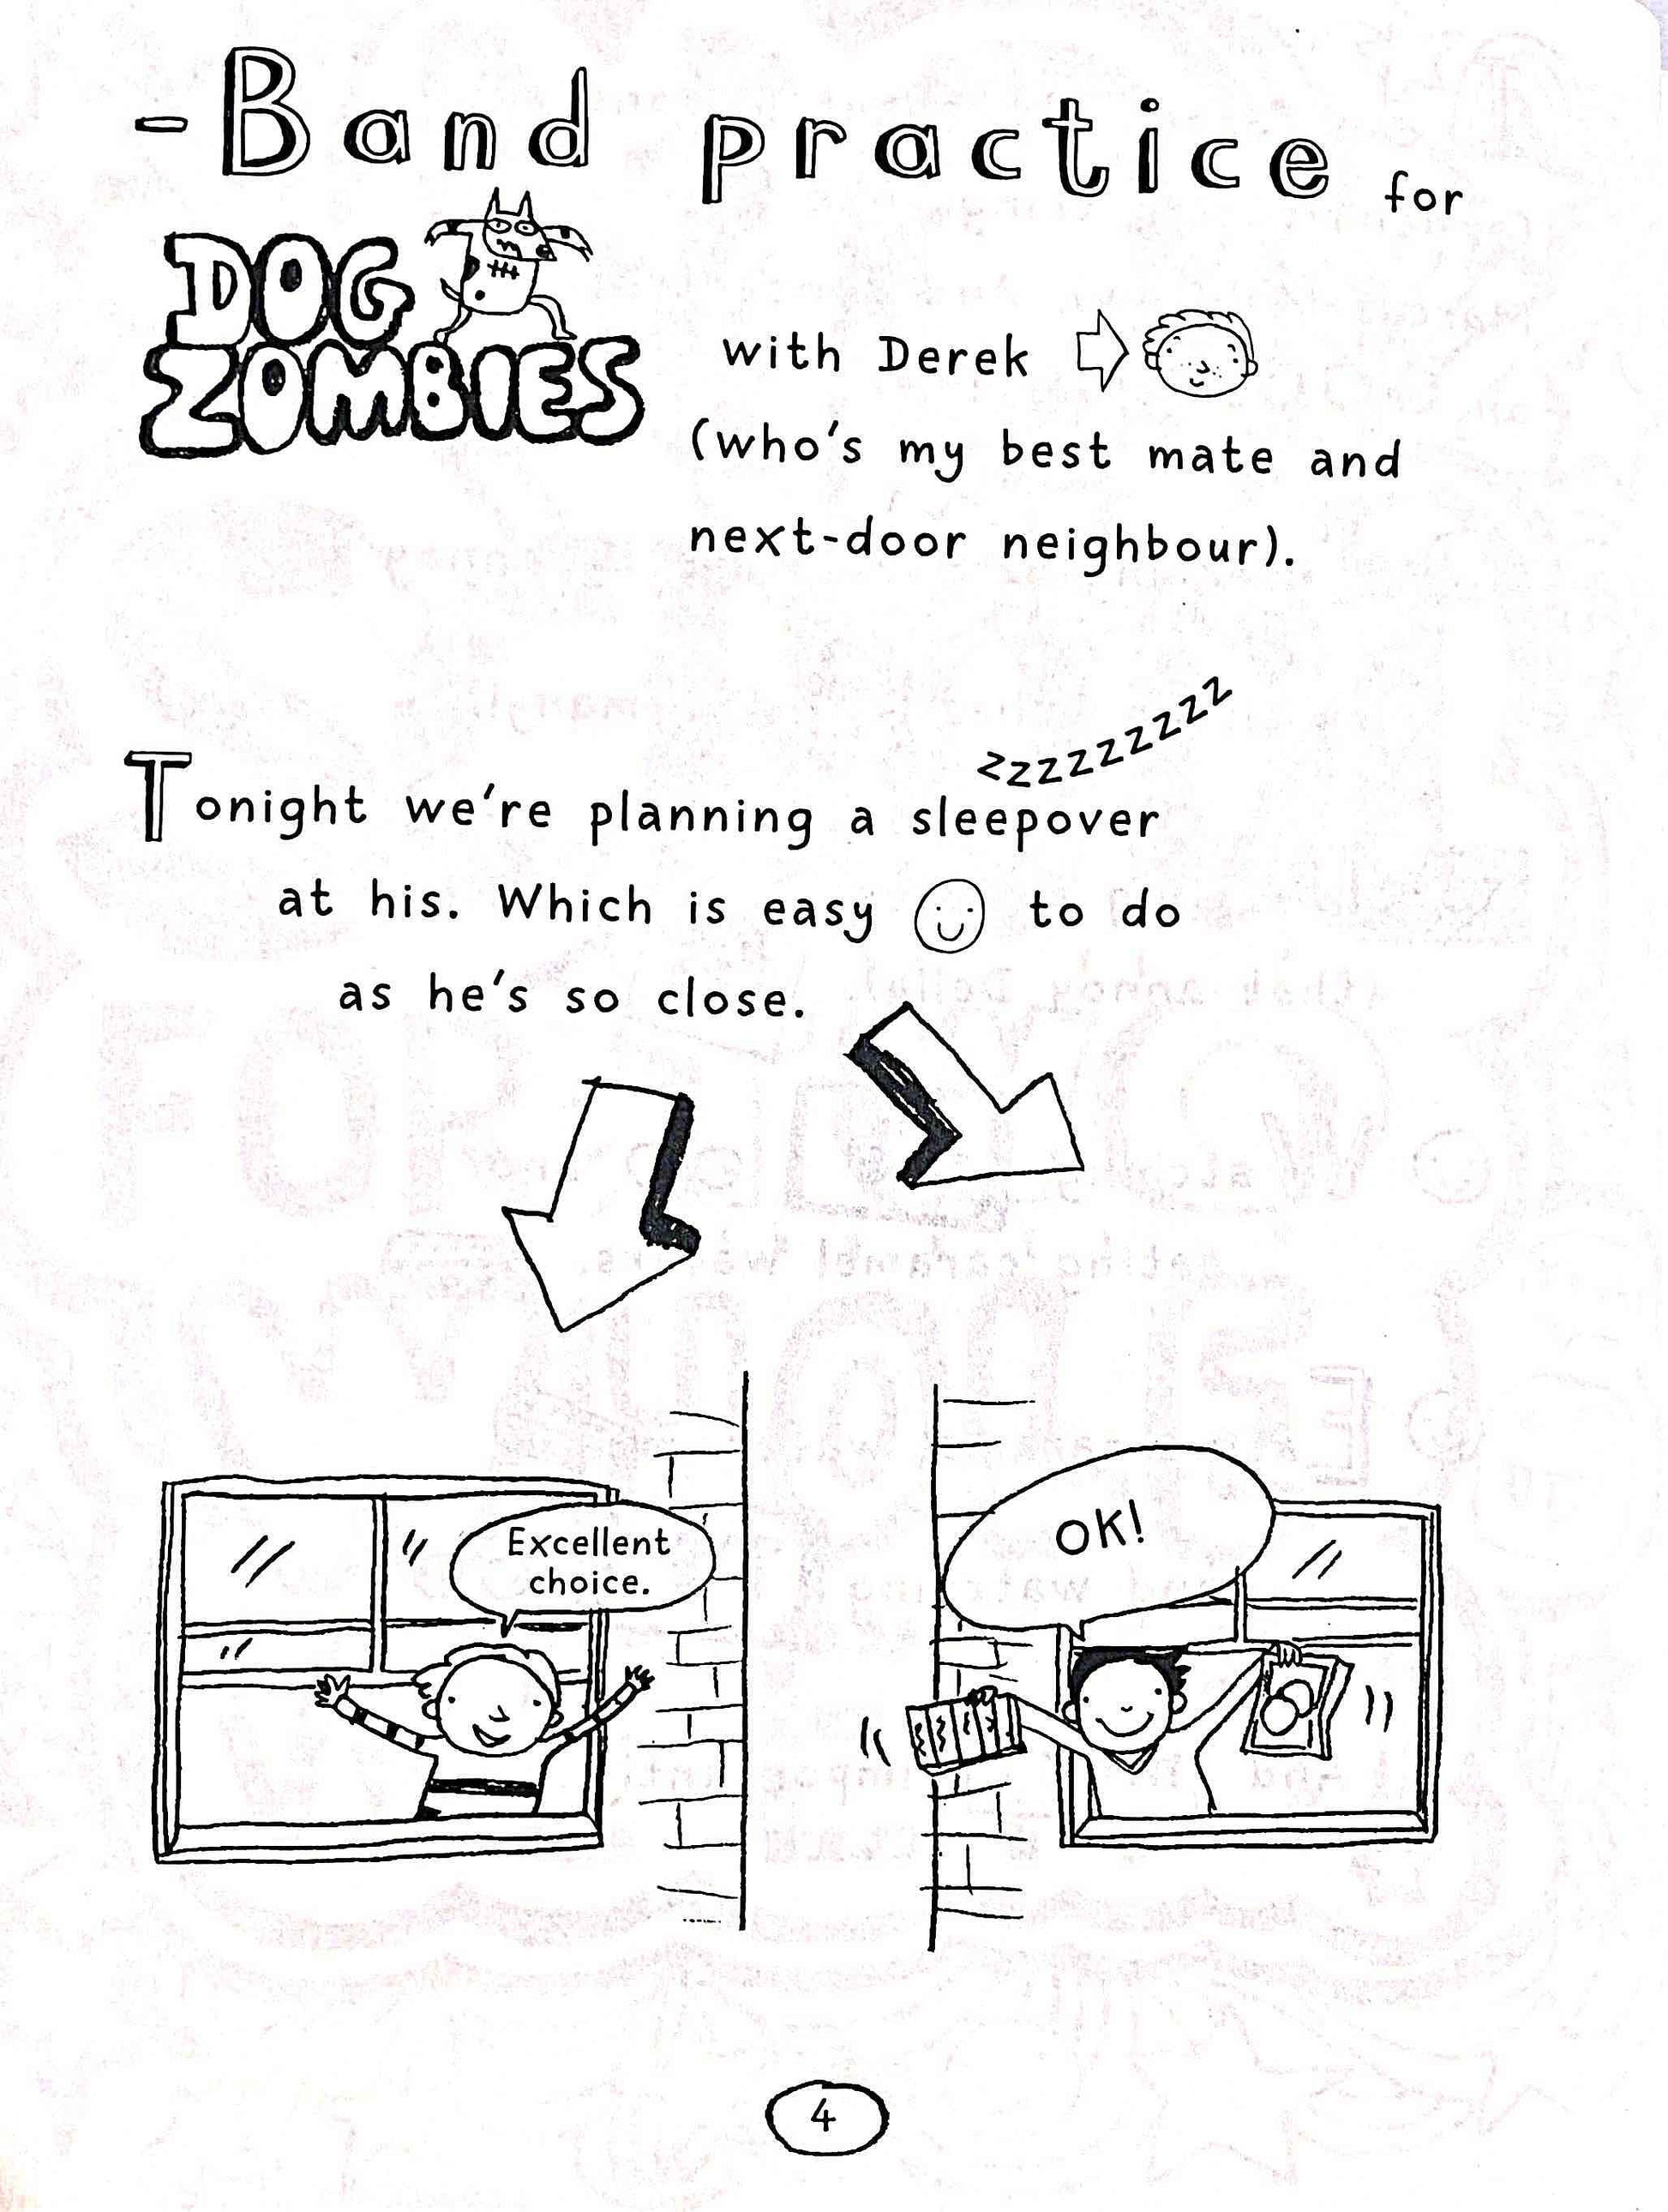 - Band practice for
DOG
ZOMBIES
with Derek
(who's my best mate and
next-door neighbour).
zzzzzzzzz
Tonight we're planning a sleepover
at his. Which is easy to do
as he's so close.
Excellent
choice.
OK!
4